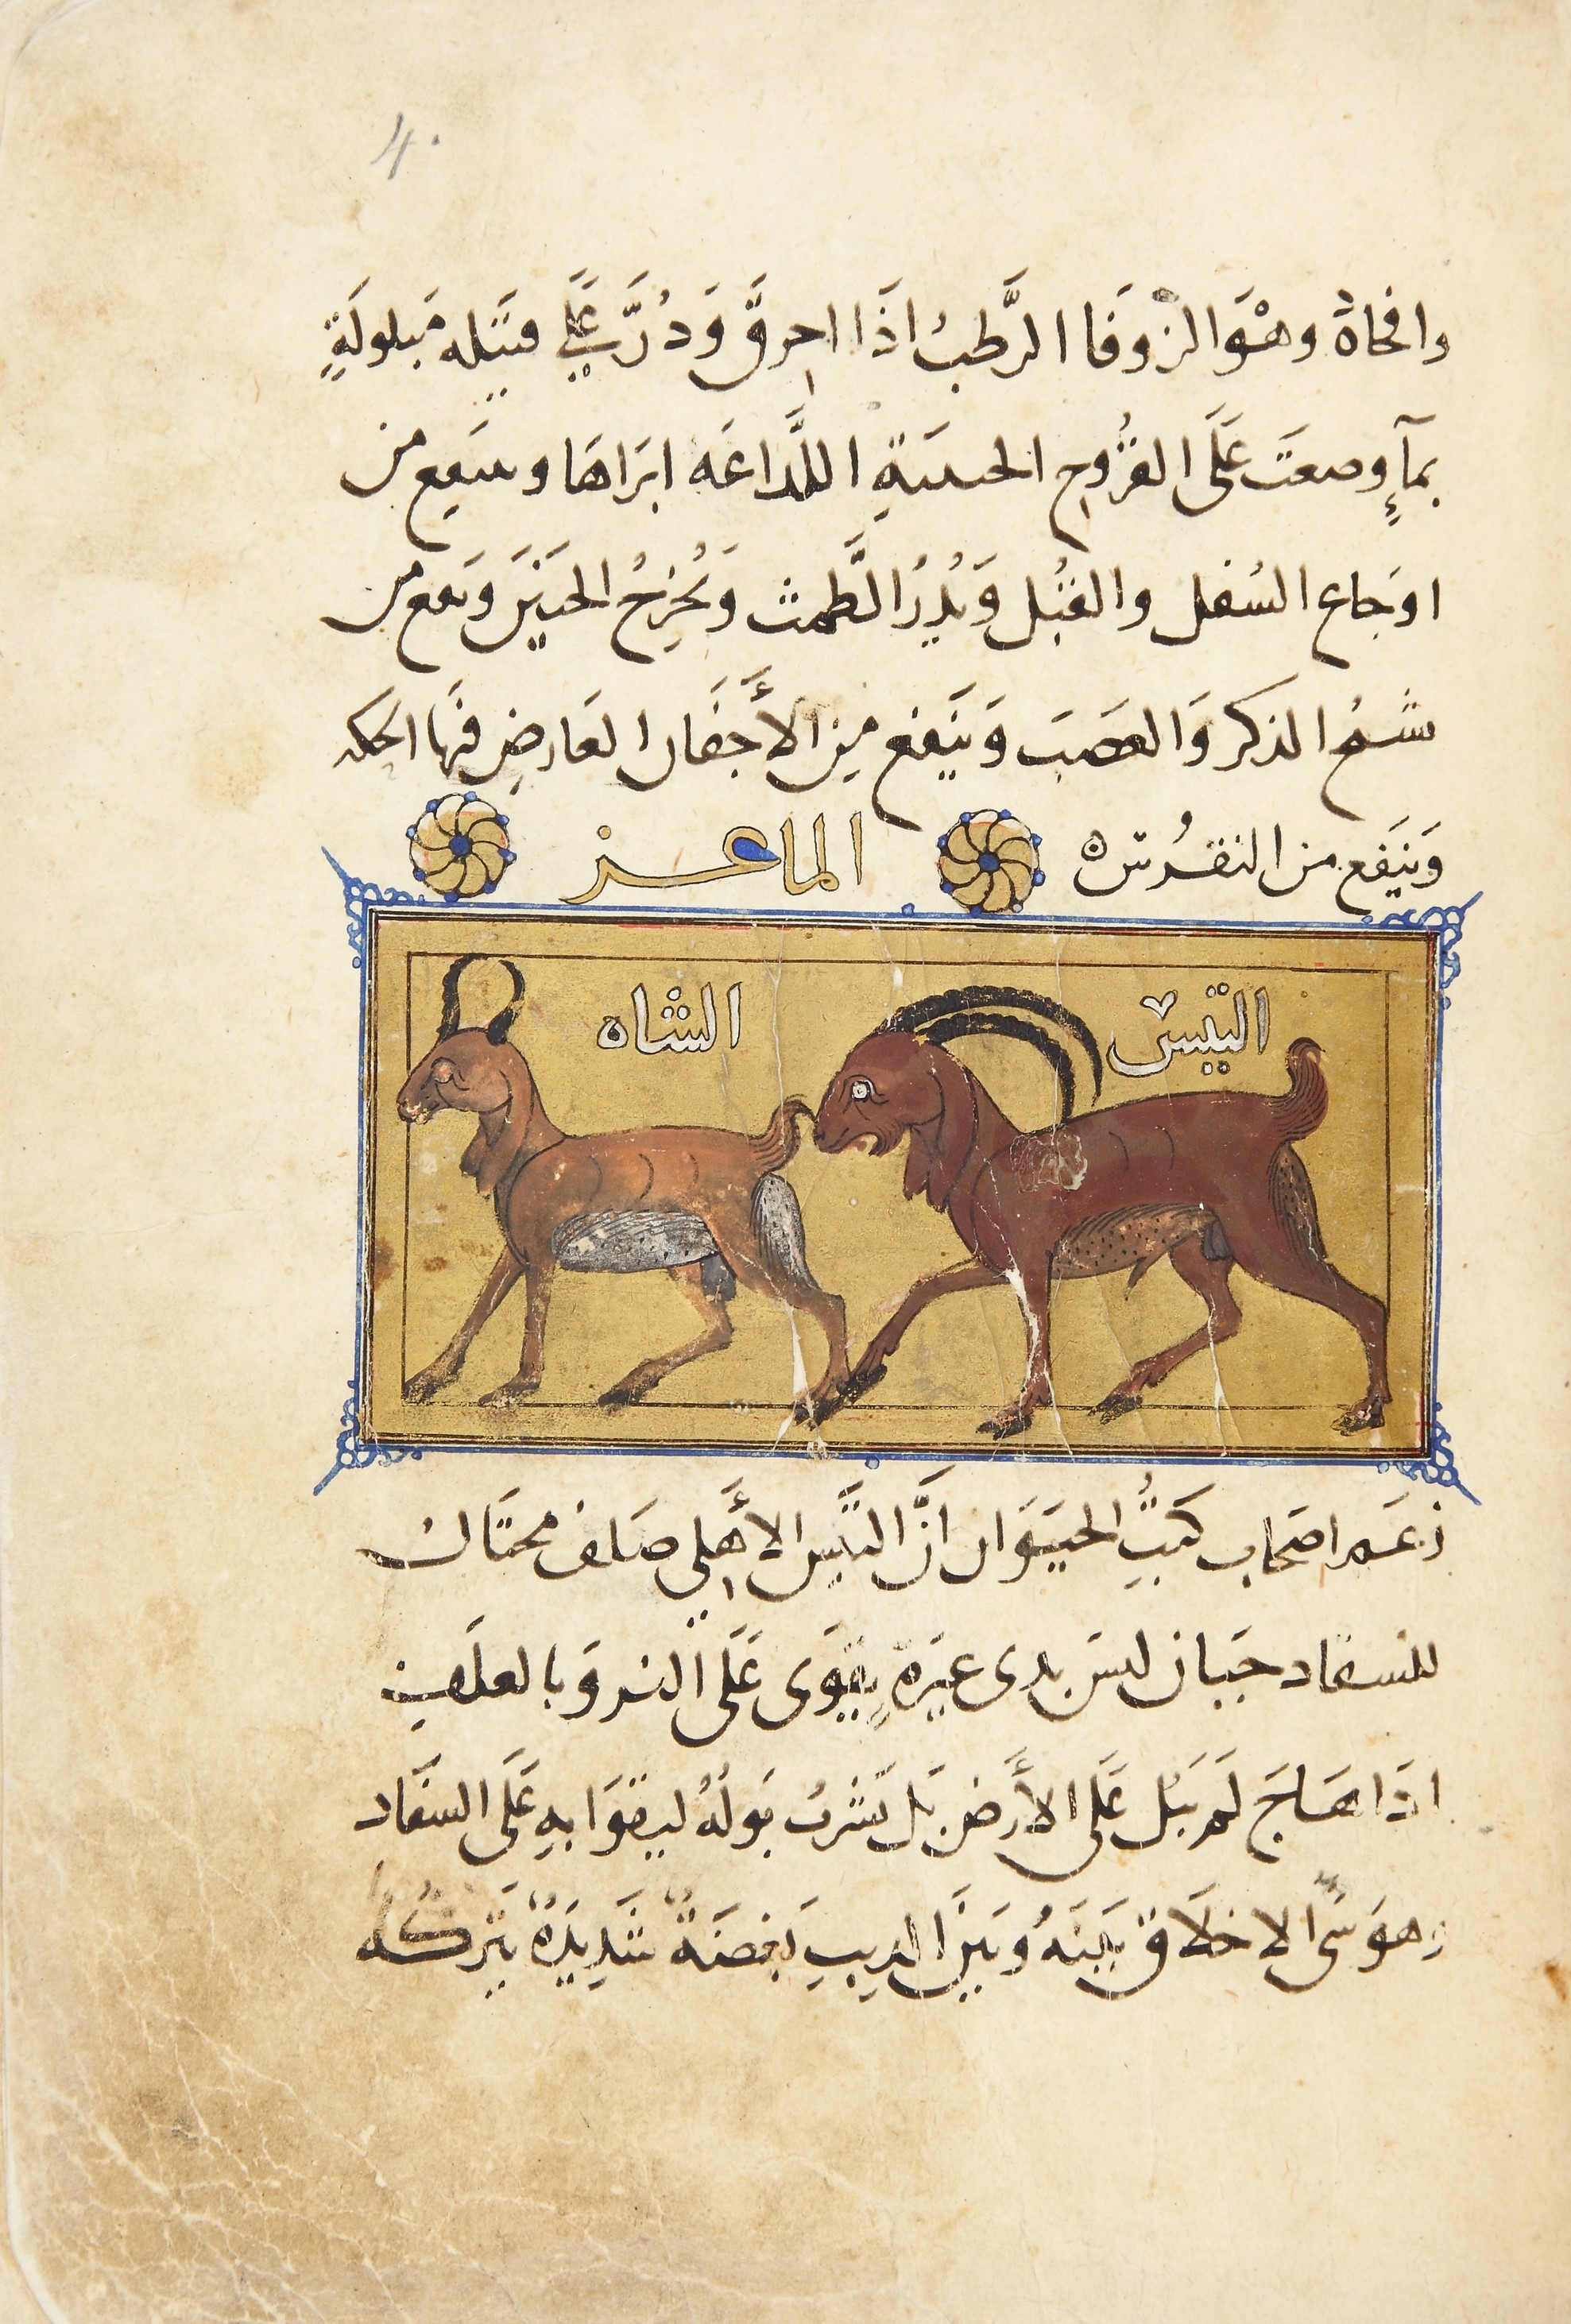 4.
وافخاة وهْوَ الزوفَا الرَّطبُ اذَا احرِق وَدُرَّ عَلَي فتيَله مَبلولَةٍ
بمآءٍ وصعتَ عَلَى القرُوحِ الحسيَةِ اللَّداعَه ابرَاهَا وسَفِع من
اوجَاع السُفل والقبُل وَيُدِرُ الطَّمث وَيُخرِجُ الجَنيَن وَىفع من
شَنُج الذكر وَالعَصَبَ وَيَنفع مِن الأَجفَان العَارضِ فَيها الحكه
وَينفَع من النقرُس ه
الماعــز
التيس
الشاه
زعَم اصحَاب كتُبِ الحيَوَان انَّ التيَّس الأَهلِي صَلف محتَال
للسفاد جبَان ليسَ بذى غيرَةٍ يقوَى عَلَى النزوَ بالعلَفِ
اذَا هَاجَ لَم يَبُل عَلَى الأَرض بَل يَشربُ بَولَهُ ليقوَا بهِ عَلَى السفَاد
وهوَ سَىُ الاخلَاق بَينَهُ وَبَينَ الذيبِ بَغضَةٌ شَدِيدَةٌ يَتركُه